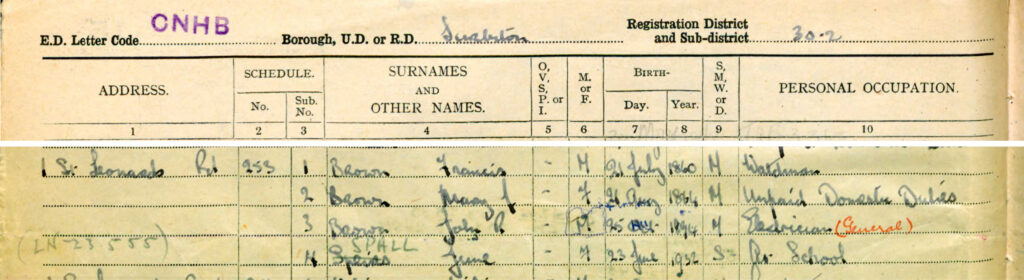 E.D. Letter Code CNHB Borough, U.D. or R.D. Surbiton Registration District and Sub-district 30-2
ADDRESS. SCHEDULE. No. Sub. No. SURNAMES AND OTHER NAMES. O, V, S, P. or I. M. or F. BIRTH- Day. Year. S, M, W, or D. PERSONAL OCCUPATION.
1 2 3 4 5 6 7 8 9 10
1 St. Leonards Rd 253 1 Brown Francis - M 21 July 1860 M
2 Brown Mary J - F 21 1864 M Unpaid Domestic Duties
3 Brown John R - M 25 1894 M Electrician (General)
(LN-23555) SPALL
4 June - F 23 June 1932 S School